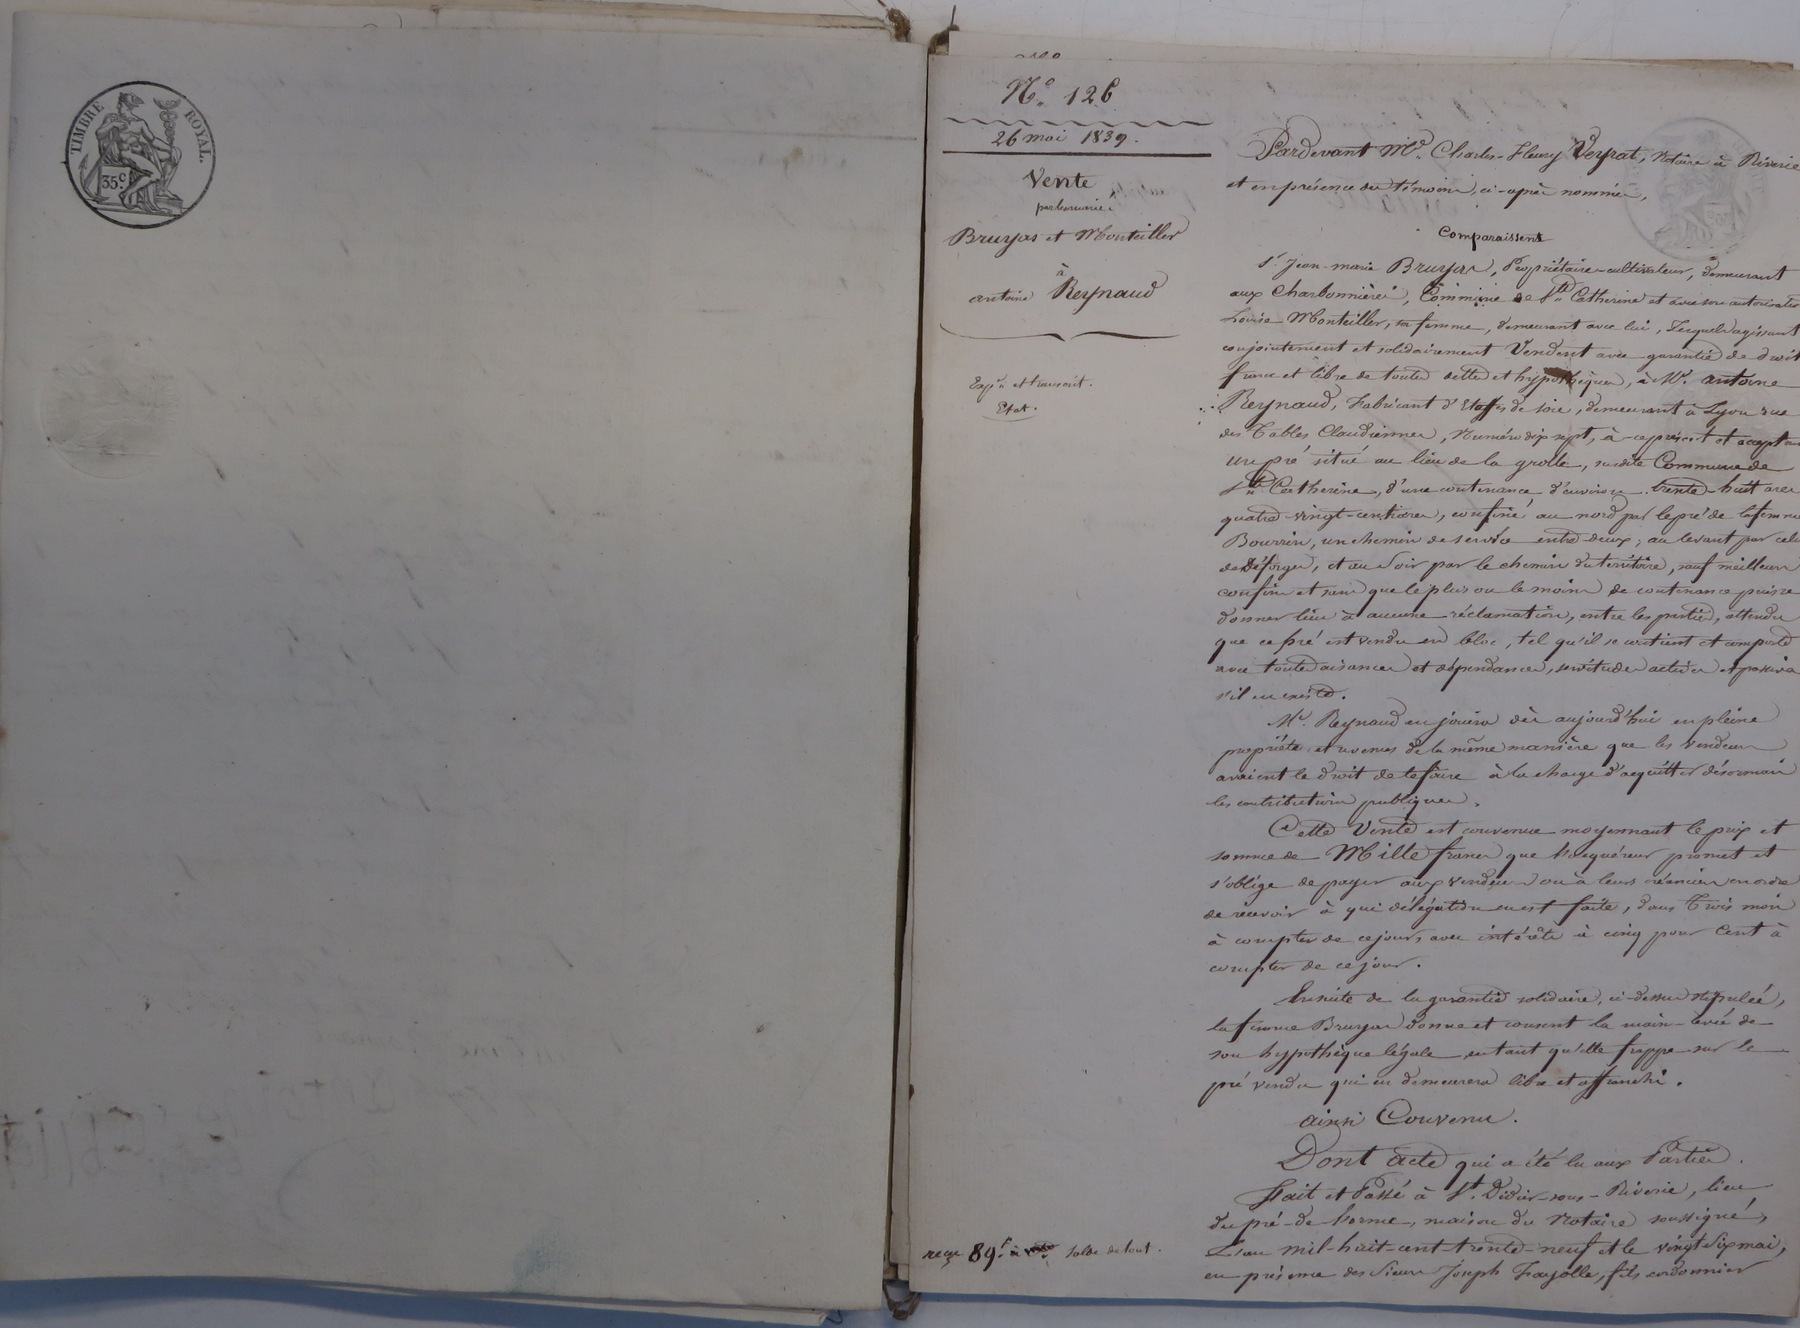 TIMBRE ROYAL.
35c.
No. 126
26 mai 1839.
Vente
par les mariés
Bruyas et Monteiller
à
antoine Reynaud
Expon. et transcrit.
Etat.
reçu 89f. solde de tout.
Pardevant Me. Charles-Fleury Veyrat, Notaire à Riverie
et en présence des témoins, ci-après nommés,
Comparaissent
sr. Jean-marie Bruyas, Propriétaire-cultivateur, demeurant
aux Charbonnières, Commune de Ste. Catherine et avec son autorisation
Louise Monteiller, sa femme, demeurant avec lui, Lesquels agissant
conjointement et solidairement Vendent avec garantie de droit
franc et libre de toutes dettes et hypothèques, à Mr. antoine
Reynaud, Fabricant d'Etoffes de soie, demeurant à Lyon rue
des Tables Claudiennes, Numéro dix sept, à ce présent et acceptant
un pré situé au lieu de la grolle, susdite Commune de
Ste. Catherine, d'une contenance d'environ trente huit ares
quatre-vingt-centiares, confiné au nord par le pré de la femme
Bourrin, un chemin de service entre-deux; au levant par celui
de Déforge, et au soir par le chemin du territoire, sauf meilleurs
confins et sans que le plus ou le moins de contenance puisse
donner lieu à aucune réclamation, entre les parties, attendu
que ce pré est vendu en bloc, tel qu'il se contient et comporte
avec toutes aisances et dépendances, servitudes actives et passives
s'il en existe.
Mr. Reynaud en jouira dès aujourd'hui en pleine
propriété et revenus de la même manière que les vendeurs
avaient le droit de le faire à la charge d'acquitter désormais
les contributions publiques.
Cette Vente est convenue moyennant le prix et
somme de Mille francs que l'acquéreur promet et
s'oblige de payer aux vendeurs ou à leurs créanciers en ordre
de recevoir à qui délégation en est faite, dans Trois mois
à compter de ce jours avec intérêts à cinq pour Cent à
compter de ce jour.
Ensuite de la garantie solidaire, ci-dessus stipulée,
la femme Bruyas donne et consent la main-levée de
son hypothèque légale en tant qu'elle frappe sur le
pré vendu qui en demeurera libre et affranchi.
ainsi Convenu.
Dont acte qui a été lu aux Parties.
Fait et Passé à St. Didier-sous-Riverie, lieu
du pré-de-lorme, maison du Notaire soussigné,
L'an mil-huit-cent-trente-neuf et le vingt six mai,
en présence des sieurs Joseph Fayolle, fils cordonnier